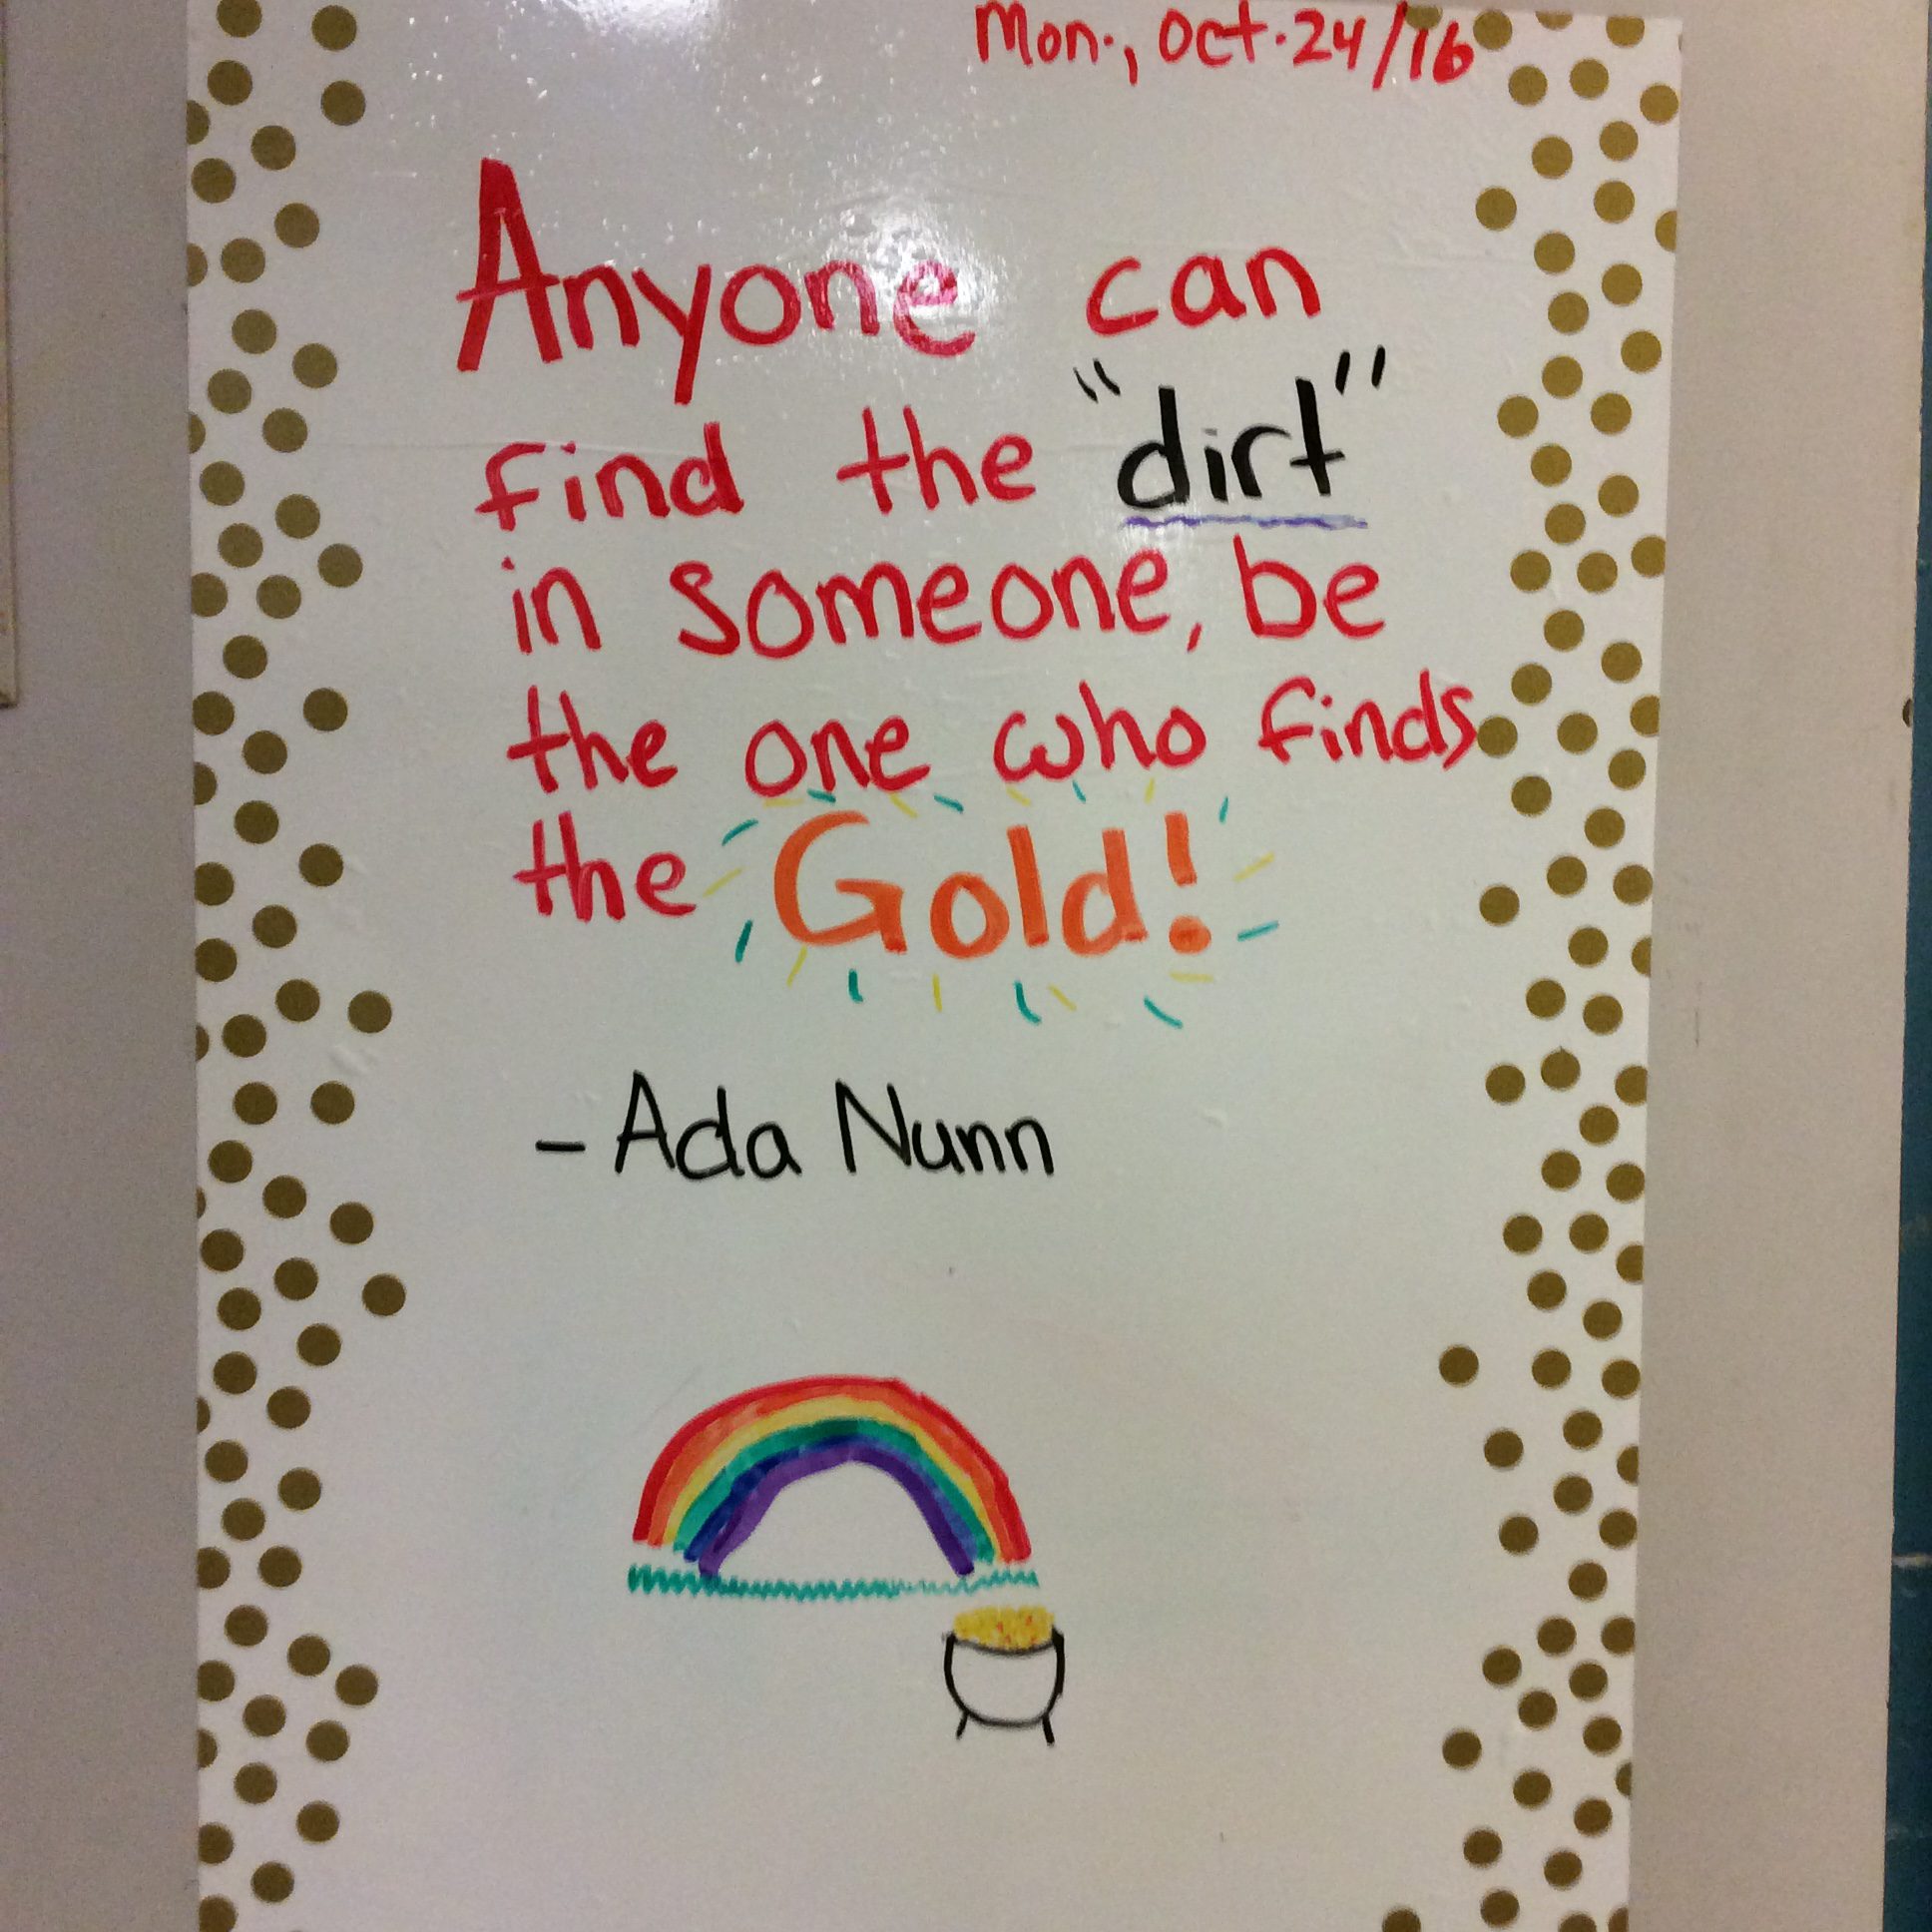 Mon., Oct. 24/16
Anyone can
find the "dirt"
in someone, be
the one who finds
the Gold!
- Ada Nunn